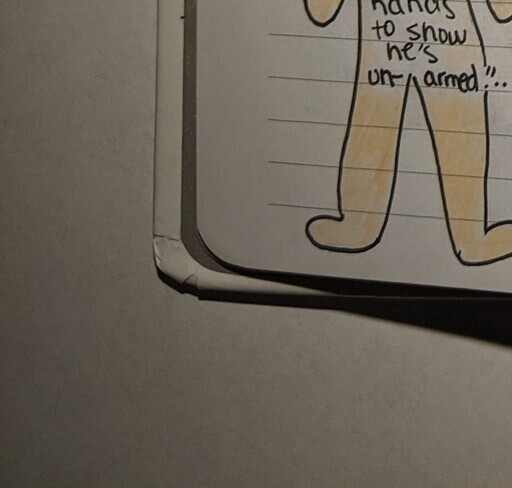 hands
to show
he's
un- armed!"..